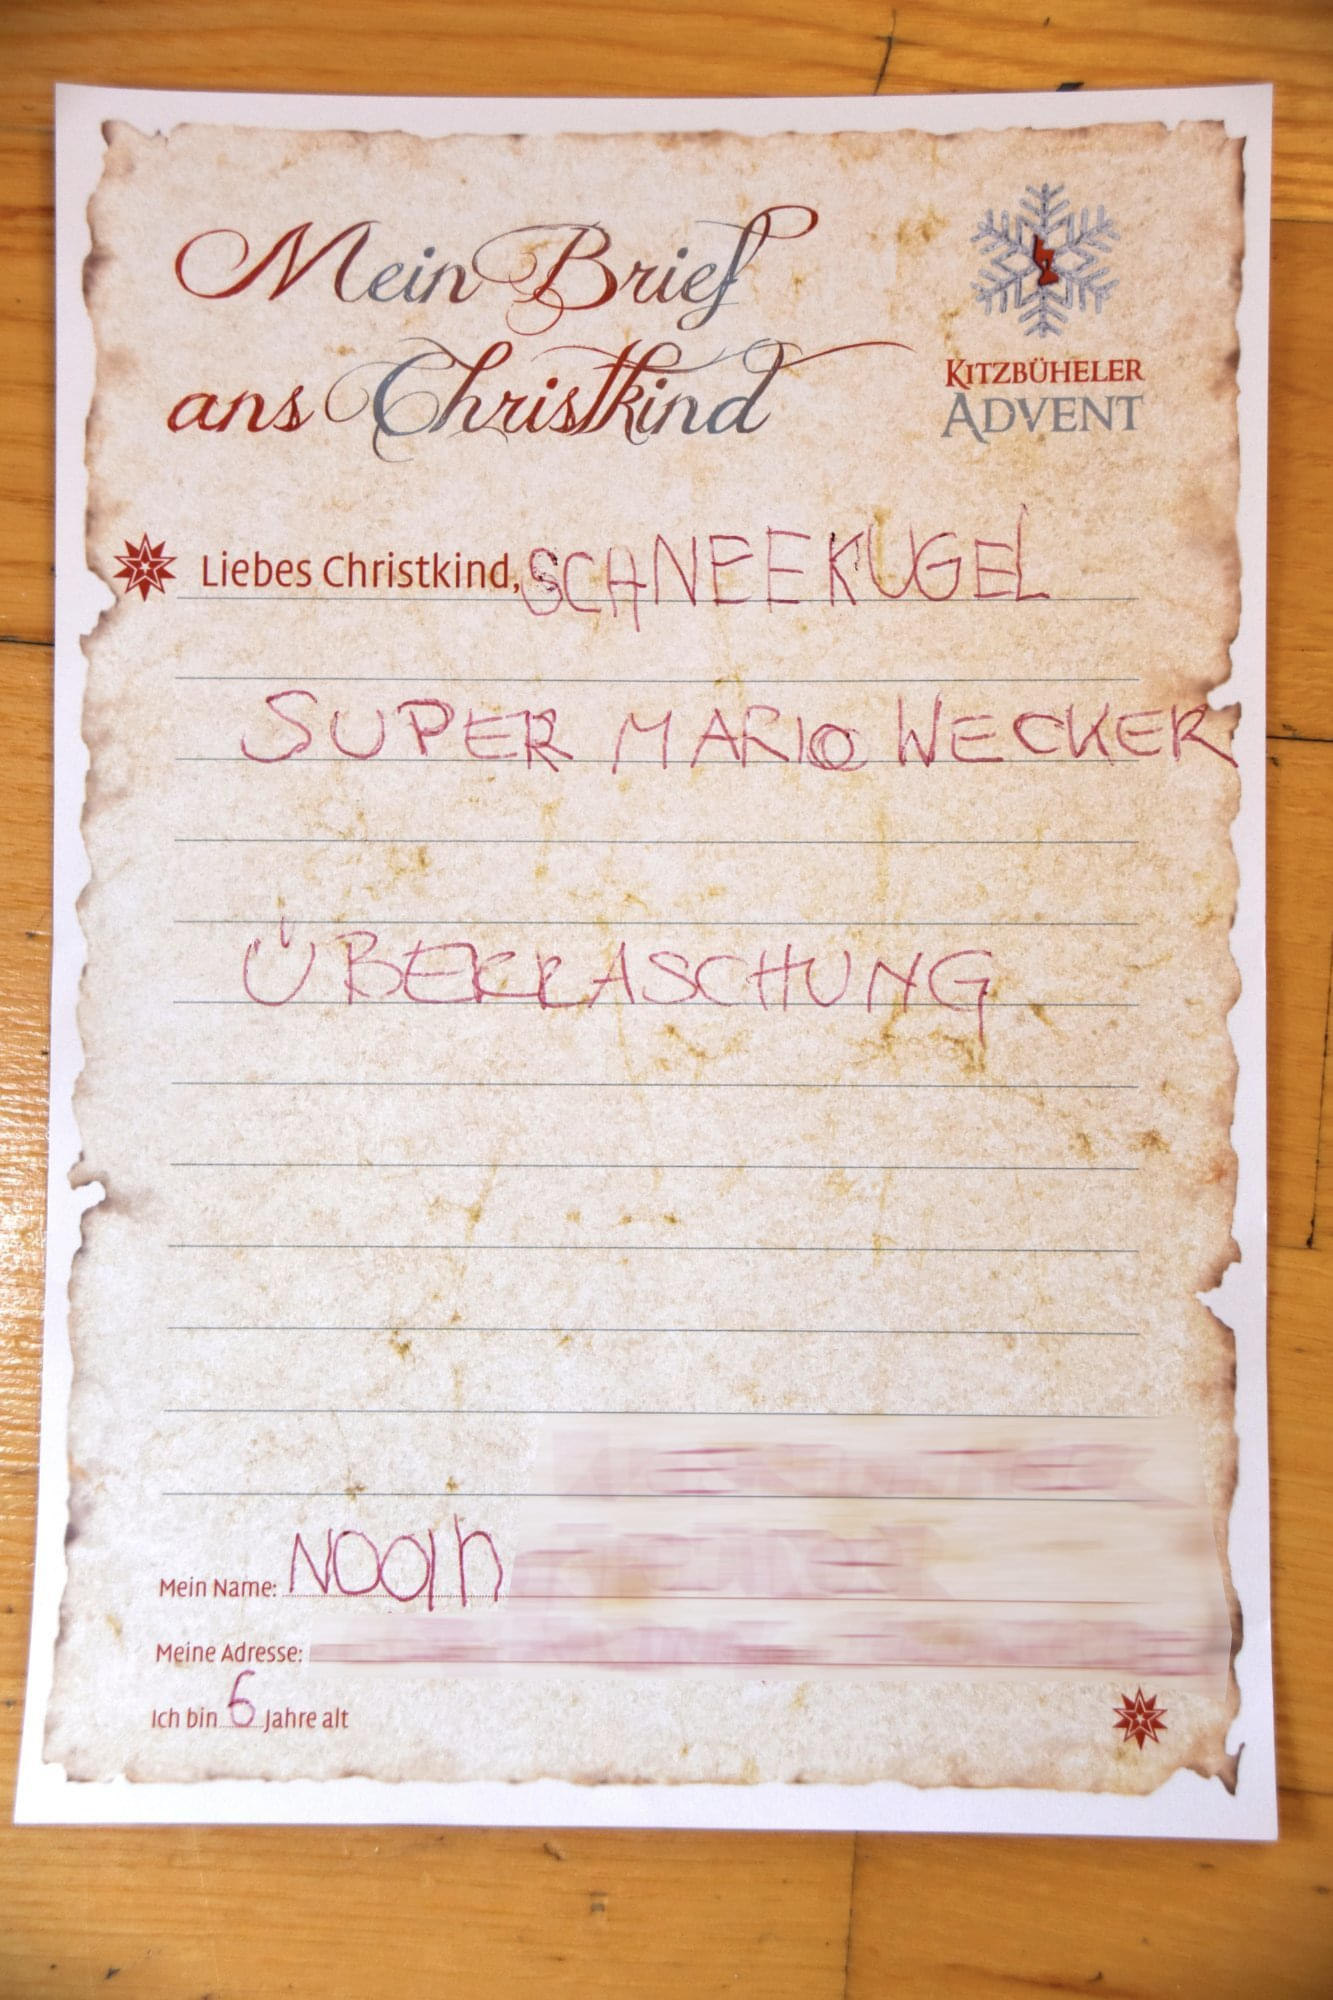 Mein Brief
ans Christkind
KITZBÜHELER
ADVENT
Liebes Christkind, SCHNEEKUGEL
SUPER MARIO WECKER
ÜBERRASCHUNG
Mein Name:
Meine Adresse:
Ich bin 6 Jahre alt